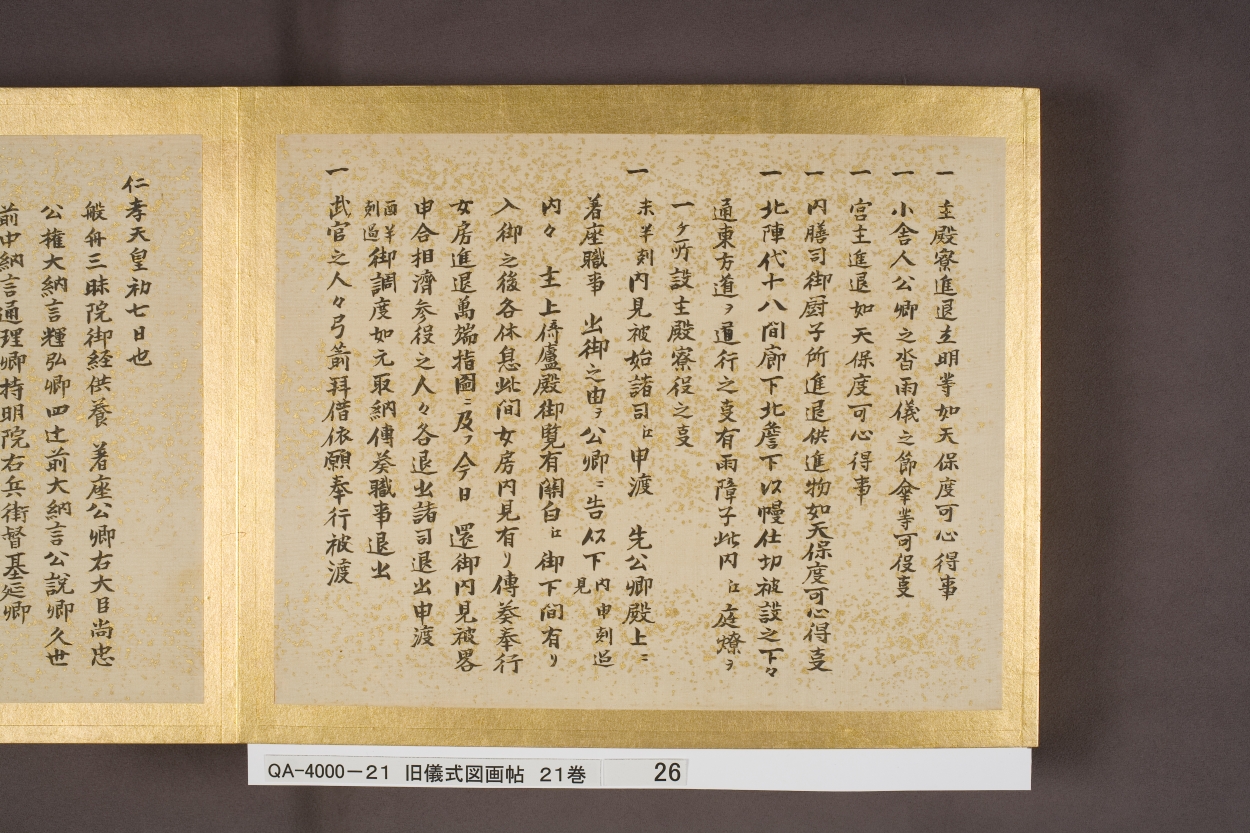 一 主殿寮進退立明等如天保度可心得事
一 小舎人公卿之沓雨儀之節傘等可役㕝
一 宮主進退如天保度可心得事
一 内膳司御厨子所進退供進物如天保度可心得㕝
一 北陣代十八間廊下北詹下以幔仕切被設之下々
通東方道ヲ通行之㕝有雨障子此内江庭燎ヲ
一ケ所設主殿寮役之㕝
一 未半刻内見被始諸司江申渡 先公卿殿上ニ
着座職事 出御之由ヲ公卿ニ告以下内見申刻過
内々 主上倚廬殿御覧有関白江御下間有リ
入御之後各休息此間女房内見有リ傳葵奉行
女房進退萬端指圖ニ及フ今日 還御内見被畧
申合相濟参役之人々各退出諸司退出申渡
酉半刻過御調度如元取納傳葵職事退出
一 武官之人々弓箭拜借依願奉行被渡
仁孝天皇初七日也
般舟三昧院御経供養 著座公卿右大臣尚忠
公権大納言輝弘卿四辻前大納言公説卿久世
前中納言通理卿持明院右兵衛督基延卿
QA-4000-21 旧儀式図画帖 21巻 26